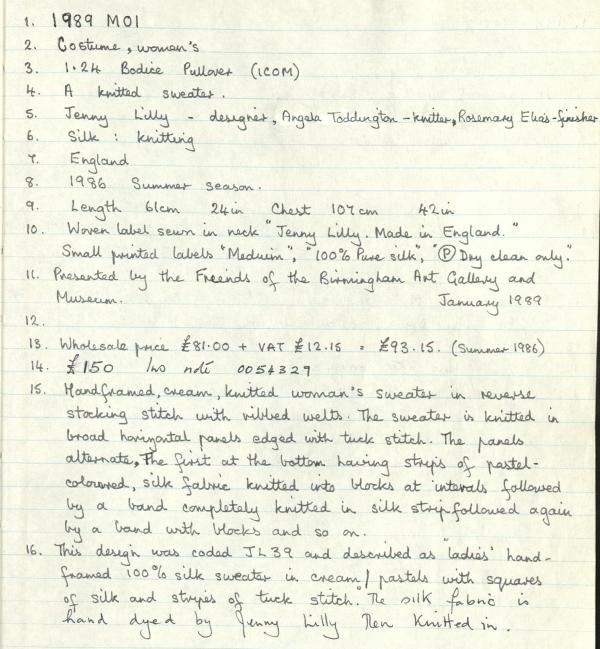 1. 1989 M01
2. Costume, women's
3. 1.24 Bodice Pullover (ICOM)
4. A knitted sweater.
5. Jenny Lilly - designer, Angela Toddington - knitter, Rosemary Elias - finisher
6. Silk : knitting
7. England
8. 1986 Summer season.
9. Length 61cm 24in Chest 107cm 42in
10. Woven label sewn in neck "Jenny Lilly. Made in England."
Small printed labels "Meduim", "100% Pure silk", "Ⓟ Dry clean only."
11. Presented by the Freends of the Birmingham Art Gallery and
Museum. January 1989
12.
13. Wholesale price £81.00 + VAT £12.15 = £93.15. (Summer 1986)
14. £150 Ins note 0054329
15. Handframed, cream, knitted woman's sweater in reverse
stocking stitch with ribbed welts. The sweater is knitted in
broad horizontal panels edged with tuck stitch. The panels
alternate, The first at the bottom having strips of pastel-
coloured, silk fabric knitted into blocks at intervals followed
by a band completely knitted in silk strip followed again
by a band with blocks and so on.
16. This design was coded JL39 and described as "ladies' hand-
framed 100% silk sweater in cream / pastels with squares
of silk and stripes of tuck stitch." The silk fabric is
hand dyed by Jenny Lilly then knitted in.